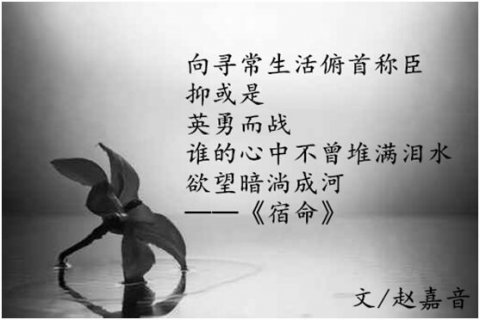 向寻常生活俯首称臣
抑或是
英勇而战
谁的心中不曾堆满泪水
欲望暗淌成河
——《宿命》
文/赵嘉音